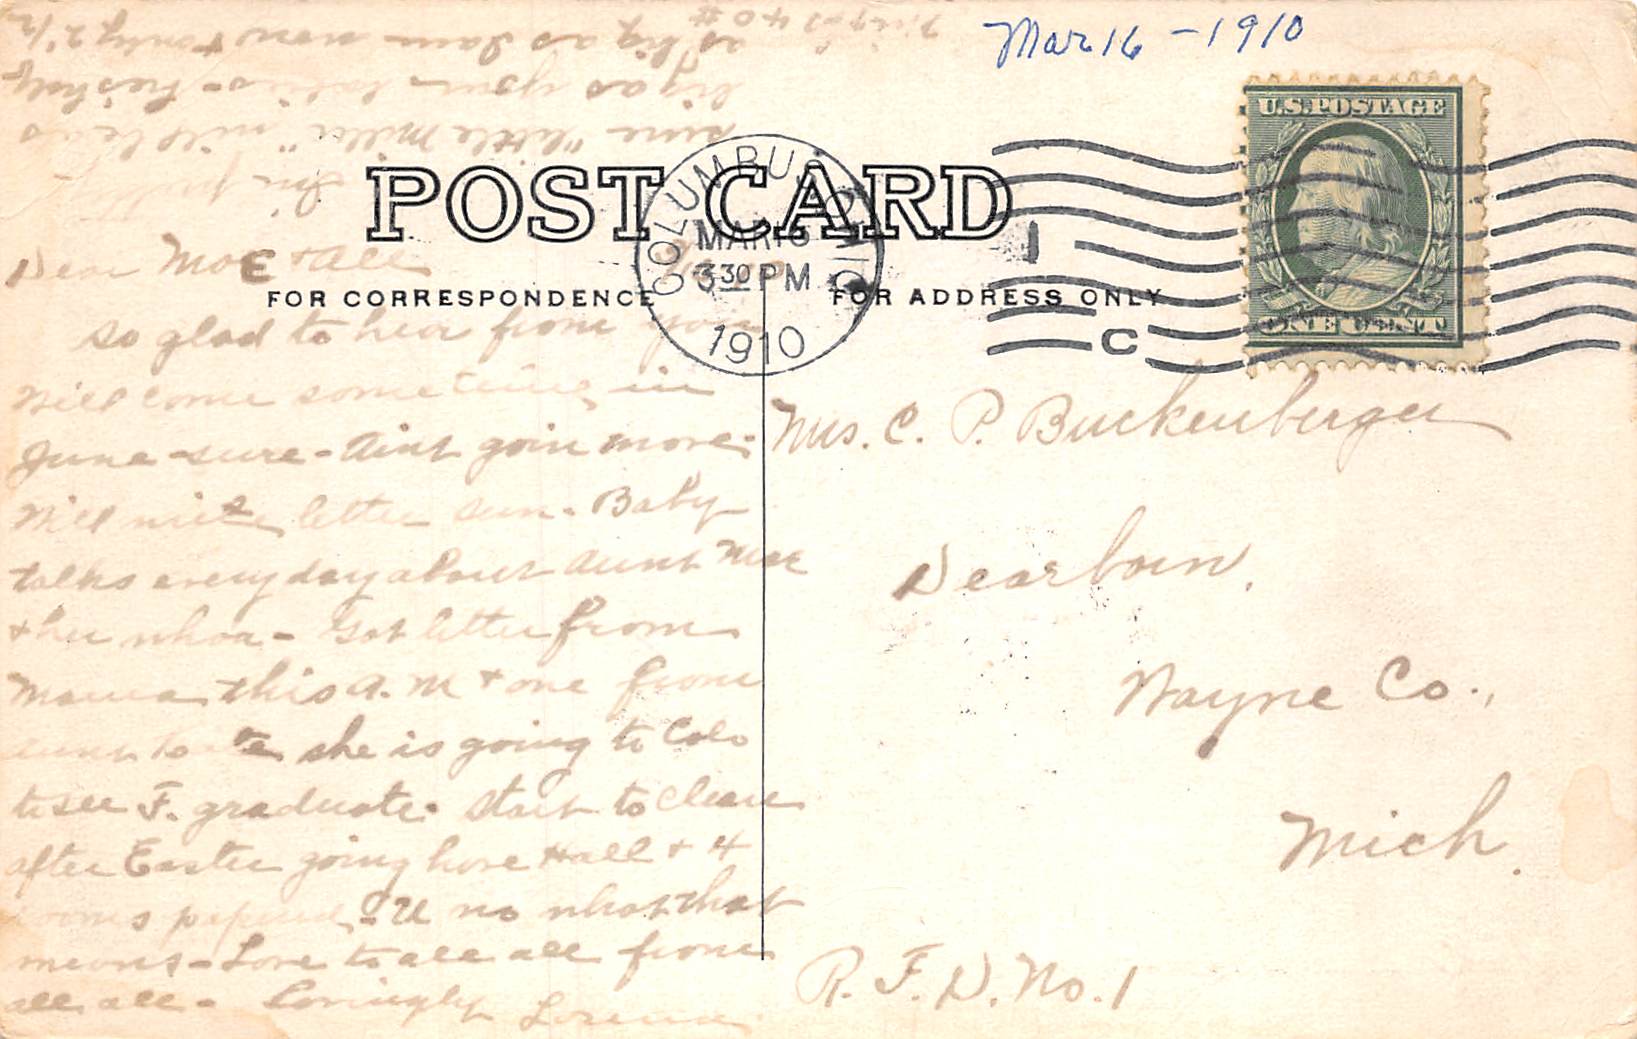 Mar 16 - 1910
U.S. POSTAGE
ONE CENT
POST CARD
COLUMBUS, OHIO
MAR 16
3 30 PM
1910
1
C
FOR CORRESPONDENCE
FOR ADDRESS ONLY
Dear Mae + all
so glad to hear from you
Will come some time in
June - sure - Aint goin more.
Will write letter sun. Baby
talks every day about Aunt Mae
+ her whoa - Got letter from
Mama this A. M + one from
Aunt she is going to Colo
to see F. graduate. Start to clean
after Easter going have Hall + 4
rooms papered - U no what that
means - Love to all all from
all all - Lovingly
"little Miller" will be as
big as your babies -
as big as Sam now + only 2 1/2
40 #
Mrs. C. P. Buckenberger
Dearborn,
Wayne Co.,
Mich.
R. F. D. No. 1